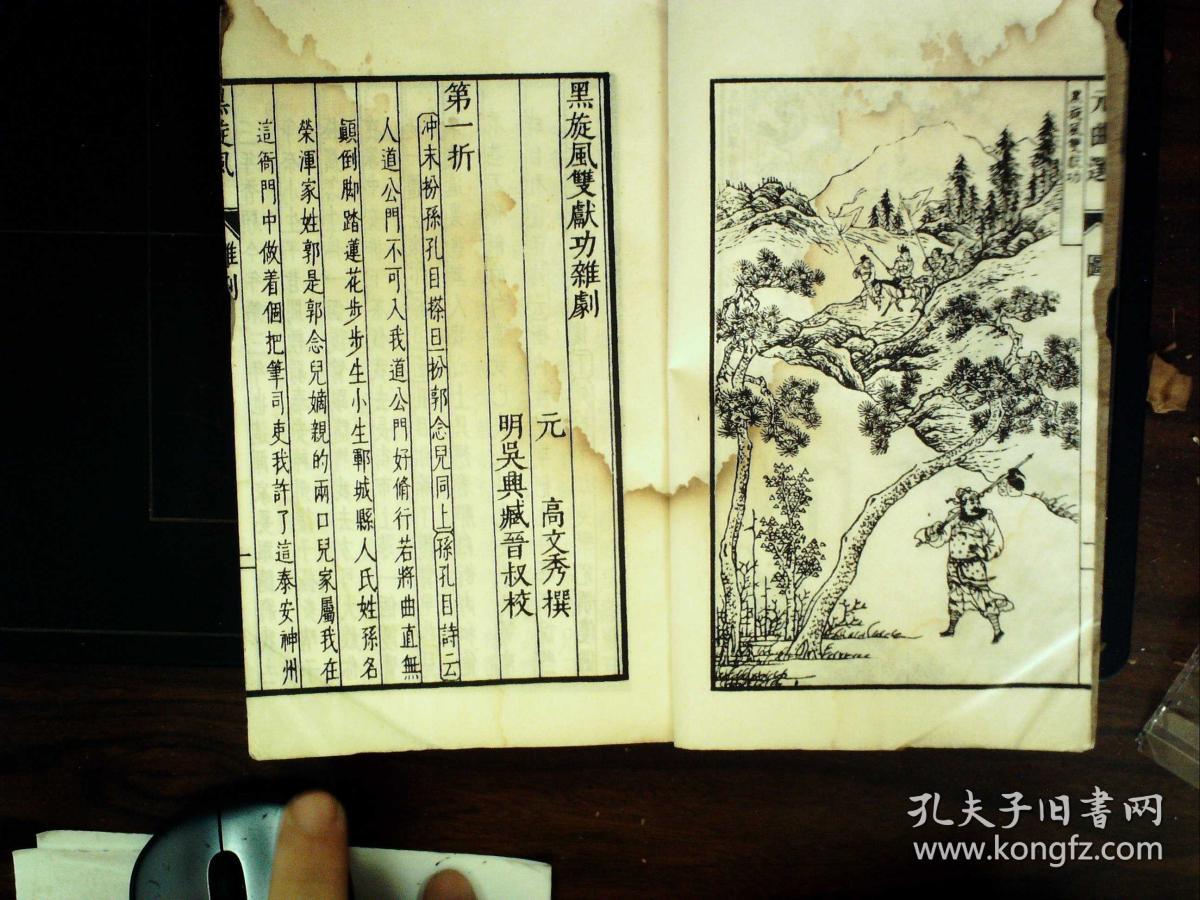 元曲選
圖
黑旋風雙獻功
黑旋風雙獻功雜劇
元 高文秀撰
明吳興臧晉叔校
第一折
冲末扮孫孔目搽旦扮郭念兒同上孫孔目詩云
人道公門不可入我道公門好脩行若將曲直無
顛倒脚踏蓮花步步生小生鄆城縣人氏姓孫名
榮渾家姓郭是郭念兒嫡親的兩口兒家屬我在
這衙門中做着個把筆司吏我許了這泰安神州
黑旋風
雜劇
一
孔夫子旧书网
www.kongfz.com